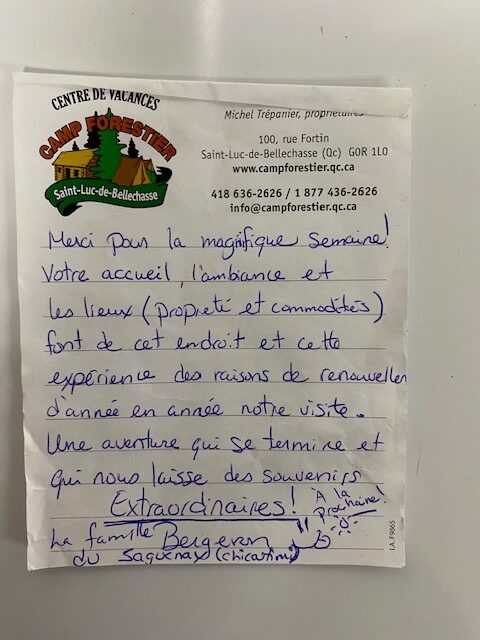 CENTRE DE VACANCES
CAMP FORESTIER
Saint-Luc-de-Bellechasse
Michel Trépanier, propriétaires
100, rue Fortin
Saint-Luc-de-Bellechasse (Qc) G0R 1L0
www.campforestier.qc.ca
418 636-2626 / 1 877 436-2626
info@campforestier.qc.ca
Merci pour la magnifique semaine!
Votre accueil, l'ambiance et
les lieux (propreté et commodités)
font de cet endroit et cette
expérience des raisons de renouveller
d'année en année notre visite.
Une aventure qui se termine et
qui nous laisse des souvenirs
Extraordinaires!
À la
prochaine!
La famille Bergeron
du Saguenay (Chicoutimi)
LA. F9865